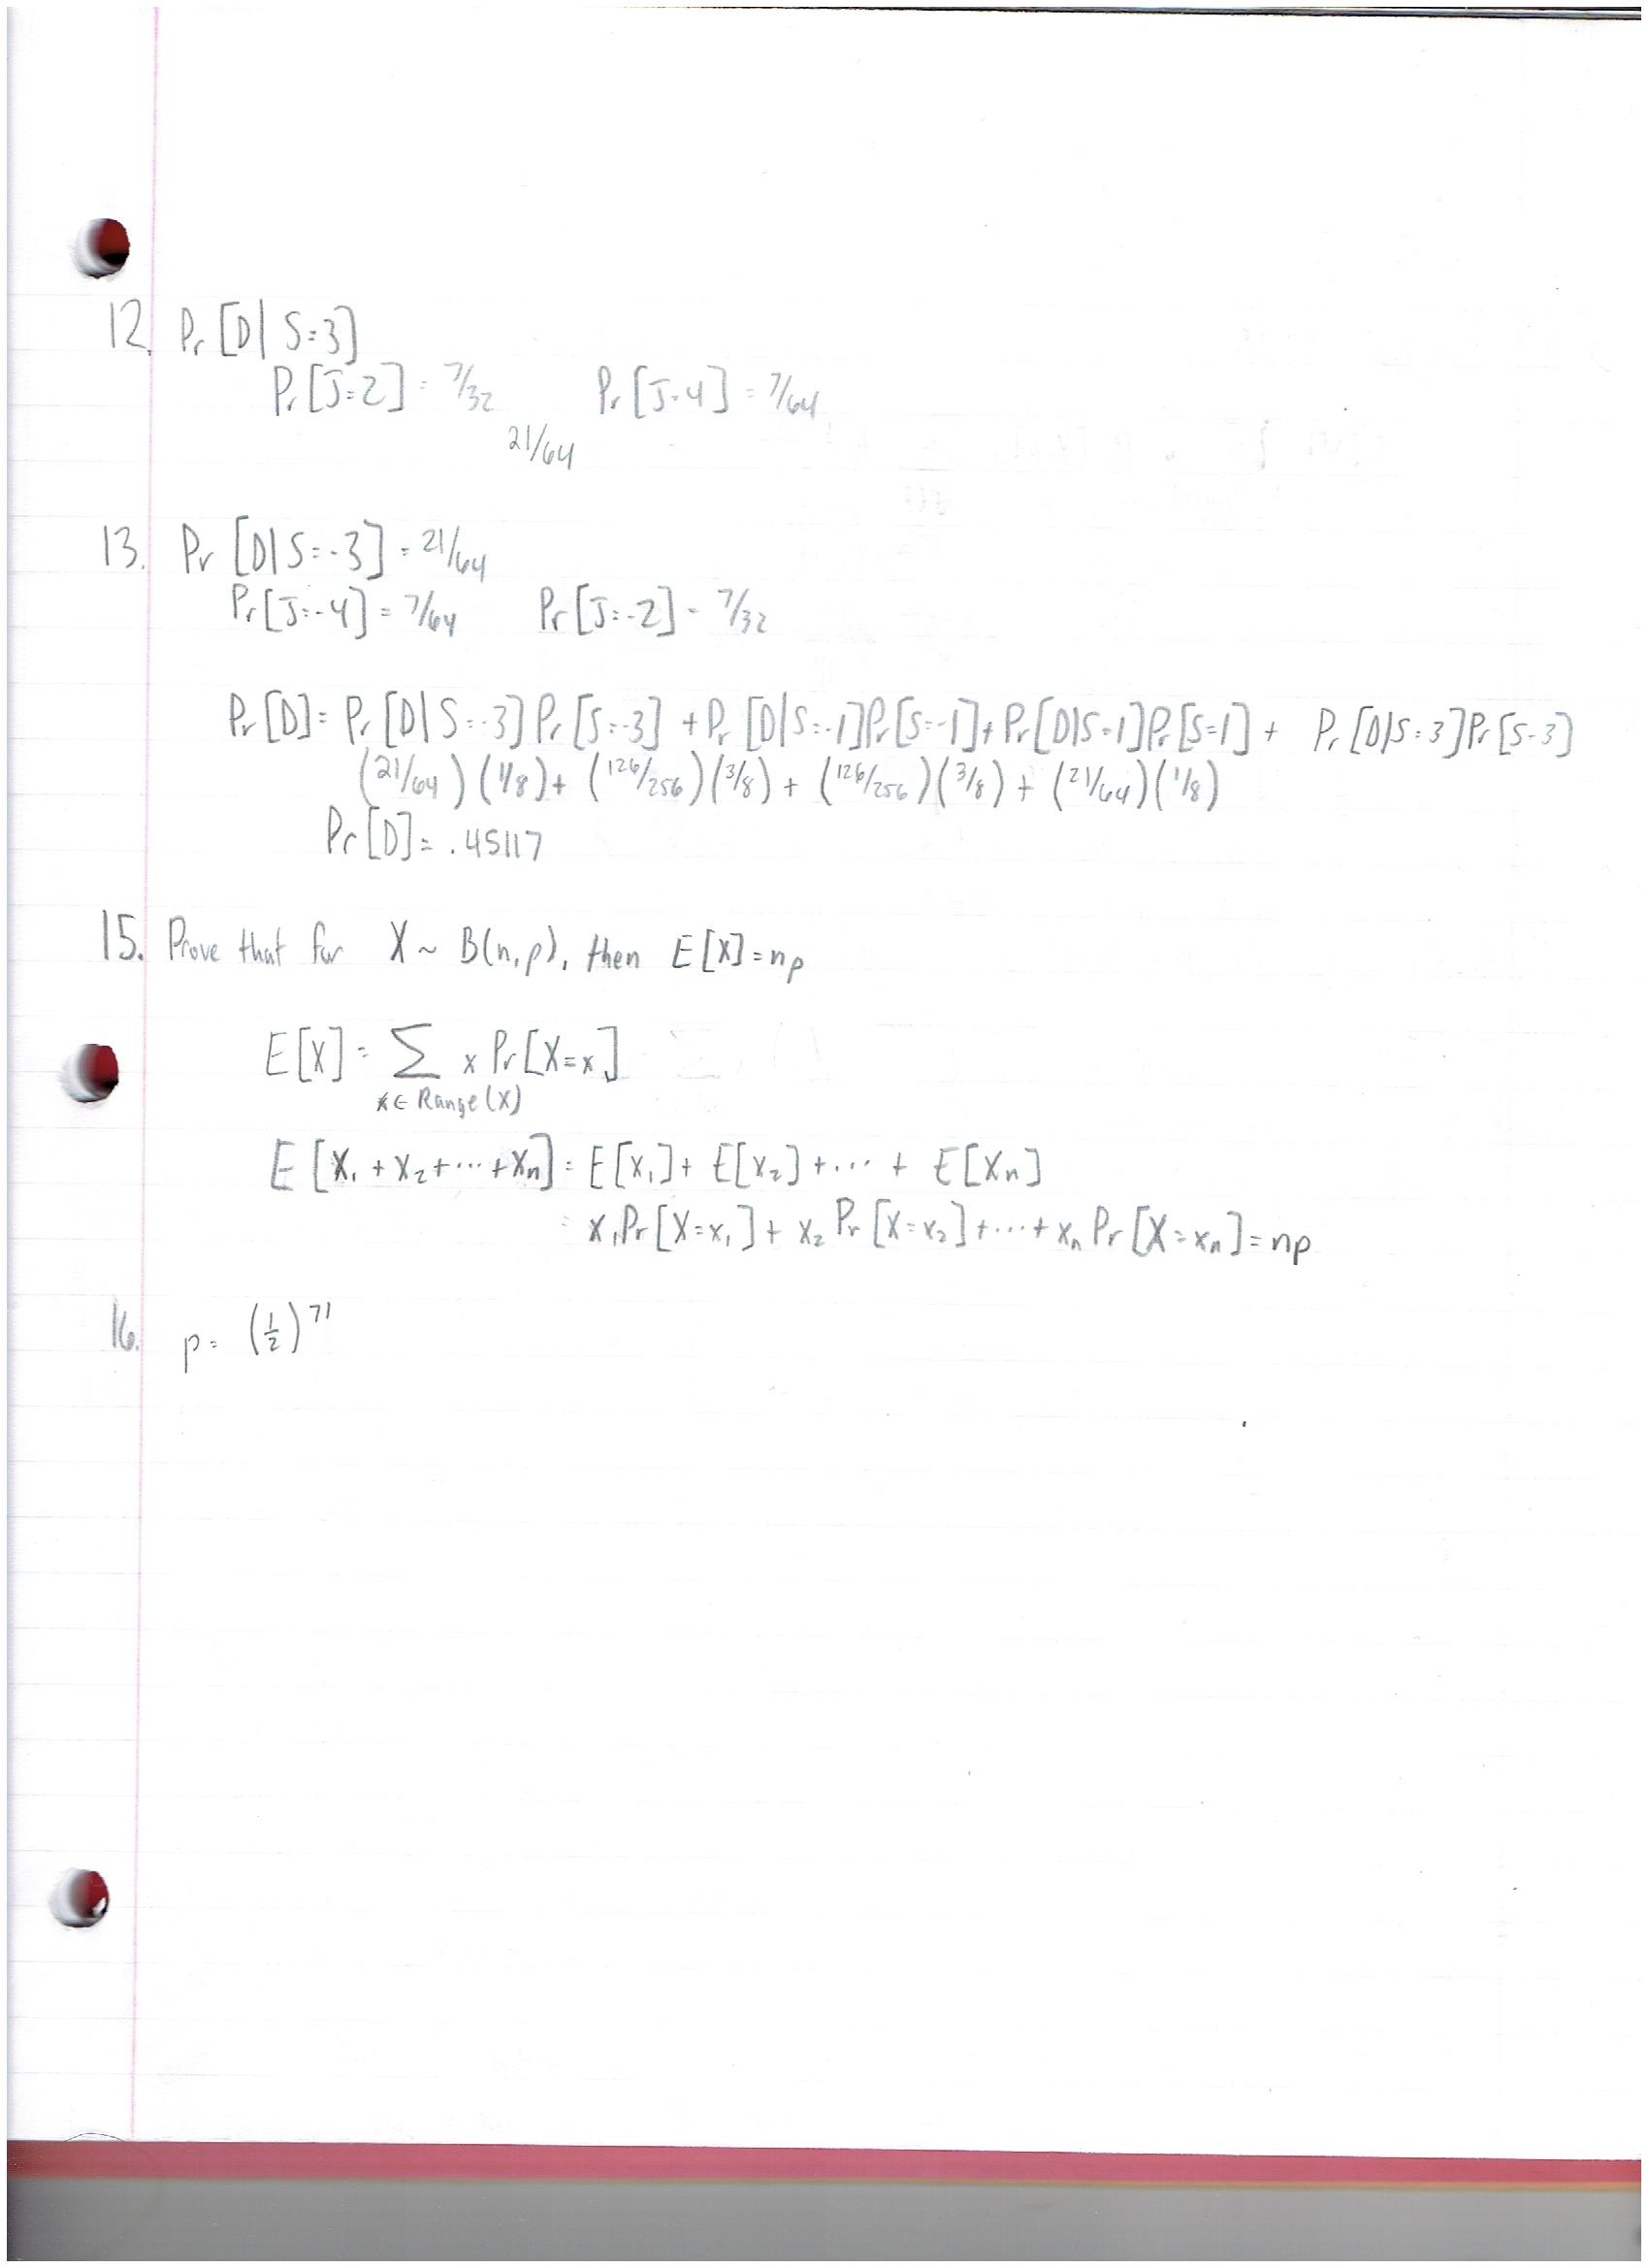 12. Pr [D| S=3]
Pr [J=2] = 7/32 Pr [J=4] = 7/64
21/64
13. Pr [D|S=-3] = 21/64
Pr[J=-4] = 7/64 Pr[J=-2] = 7/32
Pr[D] = Pr [D|S=-3] Pr [S=-3] + Pr [D|S=-1]Pr[S=-1] + Pr[D|S=1]Pr[S=1] + Pr [D|S=3]Pr[S=3]
(21/64)(1/8) + (126/256)(3/8) + (126/256)(3/8) + (21/64)(1/8)
Pr[D] = .45117
15. Prove that for X ~ B(n,p), then E[X]=np
E[X] = Σ x Pr[X=x]
x∈Range(X)
E [X₁ + X₂ + ··· + Xn] = E[X₁] + E[X₂] + ··· + E[Xn]
= x₁Pr[X=x₁] + x₂ Pr [X=x₂] + ··· + xn Pr [X=xn] = np
16. p = (1/2)^71